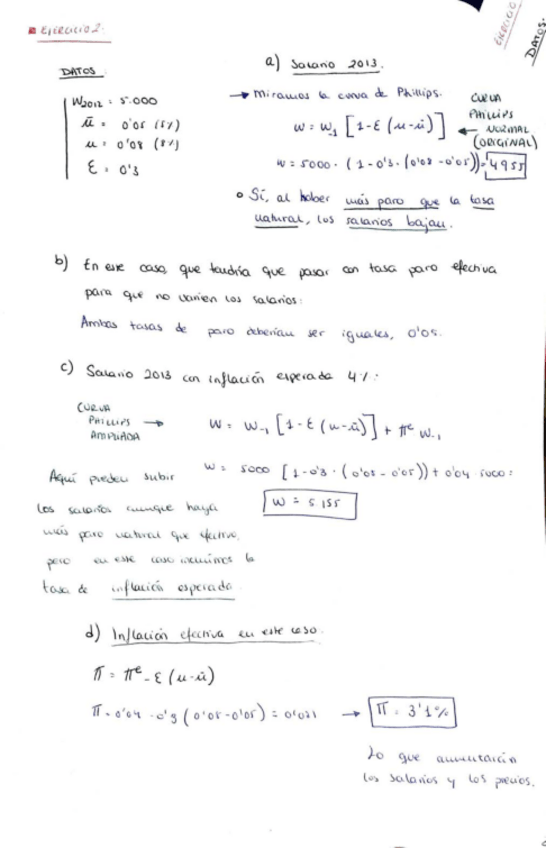 EJERCICIO 2.
EJERCICIO
DATOS.
DATOS
W2012 = 5.000
ū = 0'05 (5%)
u = 0'08 (8%)
ε = 0'3
a) Salario 2013.
→ Miramos la curva de Phillips.
W = W-1 [1-ε (u-ū)]
← CURVA
PHILLIPS
NORMAL
(ORIGINAL)
W = 5000 · (1-0'3 · (0'08-0'05)) = 4955
Sí, al haber más paro que la tasa
natural, los salarios bajan.
b) En ese caso, que tendría que pasar con tasa paro efectiva
para que no varíen los salarios:
Ambas tasas de paro deberían ser iguales, 0'05.
c) Salario 2013 con inflación esperada 4%:
CURVA
PHILLIPS →
AMPLIADA
W = W-1 [1-ε (u-ū)] + πe W-1
W = 5000 [1-0'3 · (0'08-0'05)) + 0'04 · 5000 =
W = 5.155
Aquí pueden subir
los salarios aunque haya
más paro natural que efectivo,
pero en este caso incluimos la
tasa de inflación esperada
d) Inflación efectiva en este caso.
π = πe - ε (u-ū)
π = 0'04 - 0'3 (0'08-0'05) = 0'031 → π = 3'1%
Lo que aumentarán
los salarios y los precios.